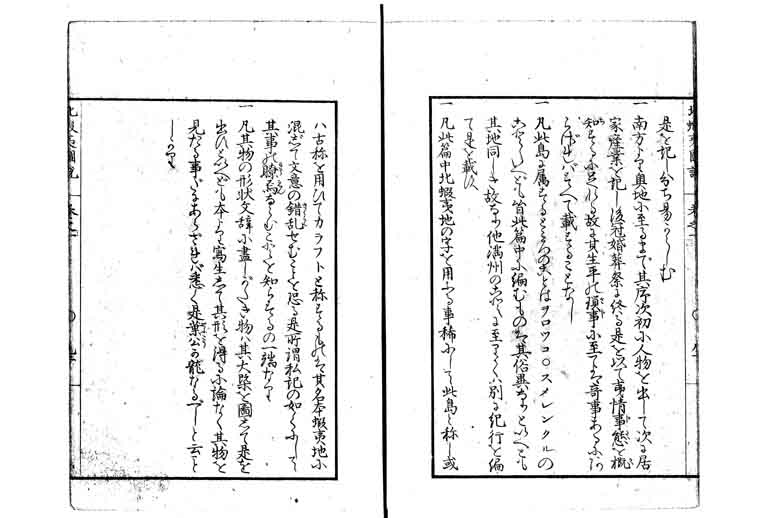 是を記し分ち易からしむ
一 南方より奥地に至るまで其序次初に人物を出して次に居
家産業を記し後冠婚葬祭に終る是を以て事情事態を概
知するに足れる故に其生平の瑣事に至ては奇事あるにあ
らざればすべて載することなし
一 凡此島に属するところの夷とはヲロツコ○スメレンクルの
夷といへども皆此篇中に編むものは其俗異なりといへども
其地同しき故なり他満州の夷に至りては別に紀行を編
て是を載す
一 凡此篇中北蝦夷地の字を用ふる事稀にして此島と称し或
ハ古称を用ひてカラフトと称するものは其名本蝦夷地に
混じて文意の錯乱せむことを恐る是所謂私記の如くにして
其事の ならむことを知らするの一端なり
一 凡其物の形状文辞に盡しがたき物ハ其大槩を圖して是を
出すといへども本より寫生して其形を得るに論なく其物を
見たる事にあらざれバ悉く是葉公の龍なるべしと云こと
しかり